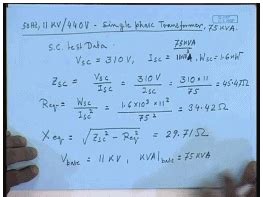 50HZ, 11 KV/440V - Single phase Transformer, 75 KVA.
S.C. test Data.
V_SC = 310V, I_SC = 75KVA / 11KV A, W_SC = 1.6KW
Z_SC = V_SC / I_SC = 310V / I_SC = 310 × 11 / 75 = 45.47Ω
R_eq = W_SC / I_SC² = 1.6 × 10³ × 11² / 75² = 34.42Ω
X_eq = √(Z_SC² - R_eq²) = 29.71Ω
V_base = 11 KV, KVA|base = 75 KVA